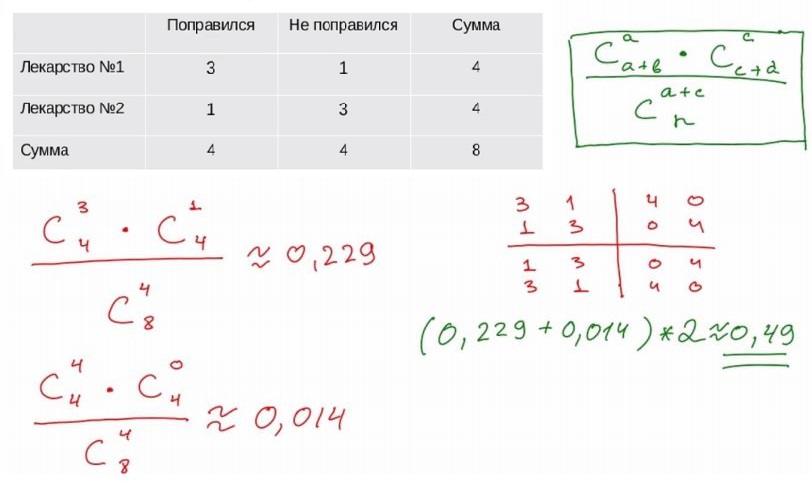 Поправился Не поправился Сумма
Лекарство №1 3 1 4
Лекарство №2 1 3 4
Сумма 4 4 8
C_{a+b}^{a} · C_{c+d}^{c}
C_{n}^{a+c}
C_{4}^{3} · C_{4}^{1} ≈ 0,229
C_{8}^{4}
3 1 4 0
1 3 0 4
1 3 0 4
3 1 4 0
(0,229 + 0,014) * 2 ≈ 0,49
C_{4}^{4} · C_{4}^{0} ≈ 0,014
C_{8}^{4}